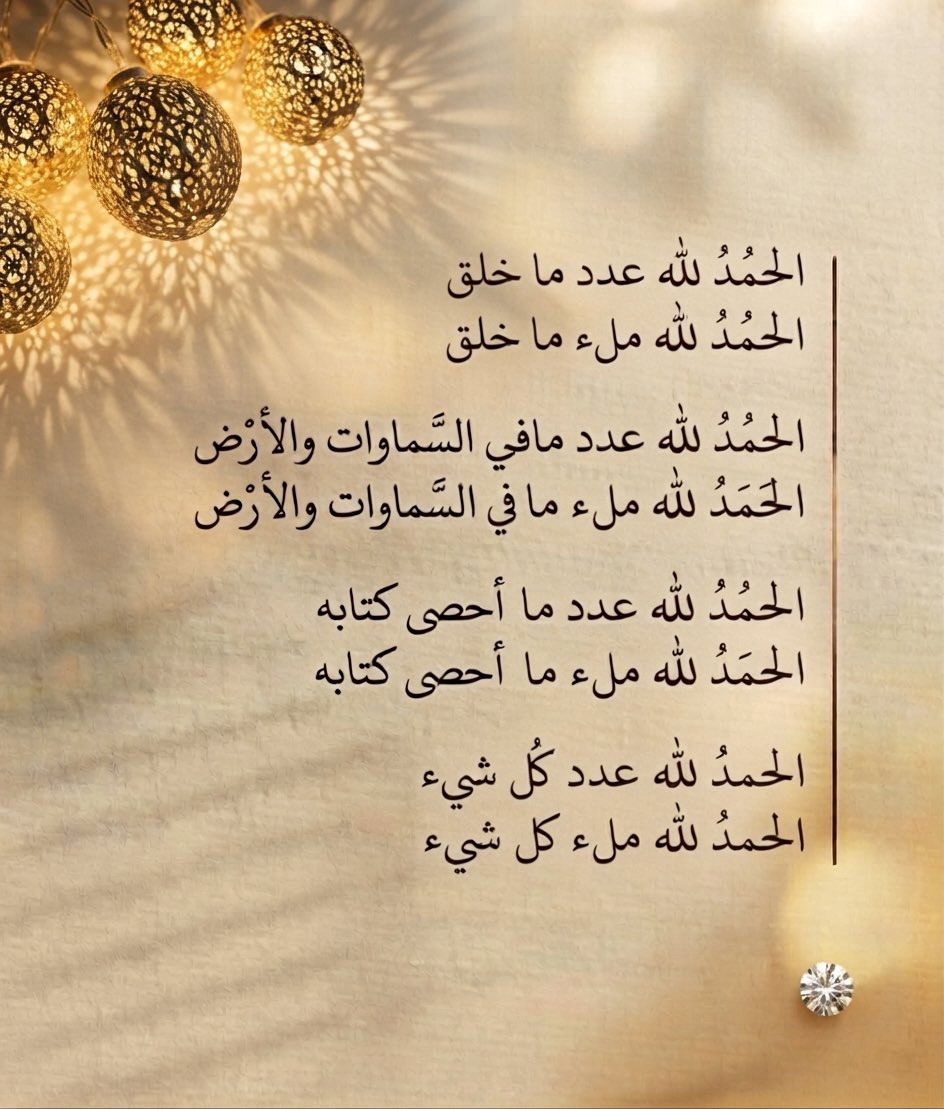 الحمُدُ لله عدد ما خلق
الحمُدُ لله ملء ما خلق
الحمُدُ لله عدد مافي السَّماوات والأرْض
الحَمَدُ لله ملء ما في السَّماوات والأرْض
الحمُدُ لله عدد ما أحصى كتابه
الحمَدُ لله ملء ما أحصى كتابه
الحمدُ لله عدد كُل شيء
الحمدُ لله ملء كل شيء